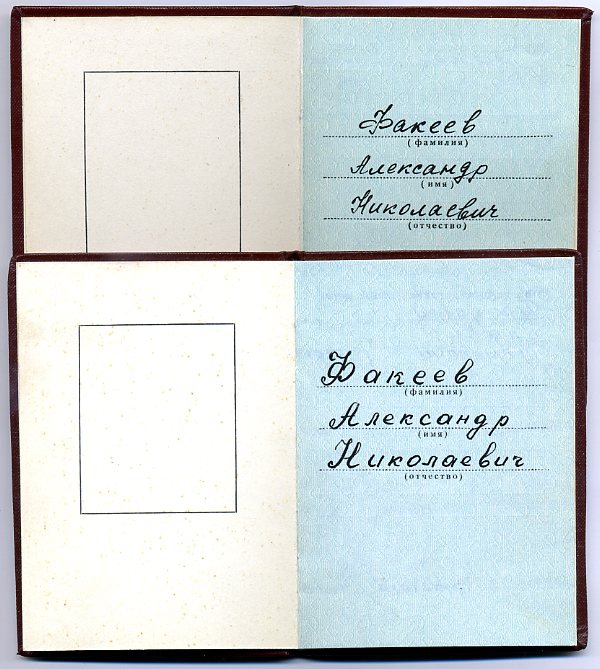 Факеев
(фамилия)
Александр
(имя)
Николаевич
(отчество)
Факеев
(фамилия)
Александр
(имя)
Николаевич
(отчество)